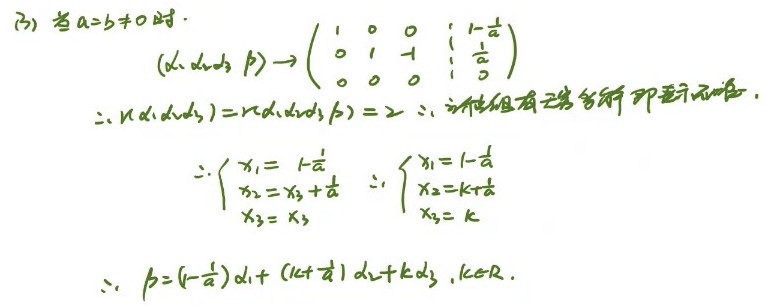 (3) 当a=b≠0时.
(α₁ α₂ α₃ β) → ( 1 0 0 ⋮ 1-1/a
0 1 -1 ⋮ 1/a
0 0 0 ⋮ 0 )
∴ r(α₁α₂α₃)=r(α₁α₂α₃β)=2 ∴ 方程组有无穷多解 即表示不唯一.
∴ { x₁= 1-1/a ∴ { x₁=1-1/a
x₂=x₃+1/a x₂=k+1/a
x₃=x₃ x₃=k
∴ β=(1-1/a)α₁+(k+1/a)α₂+kα₃,k∈R.